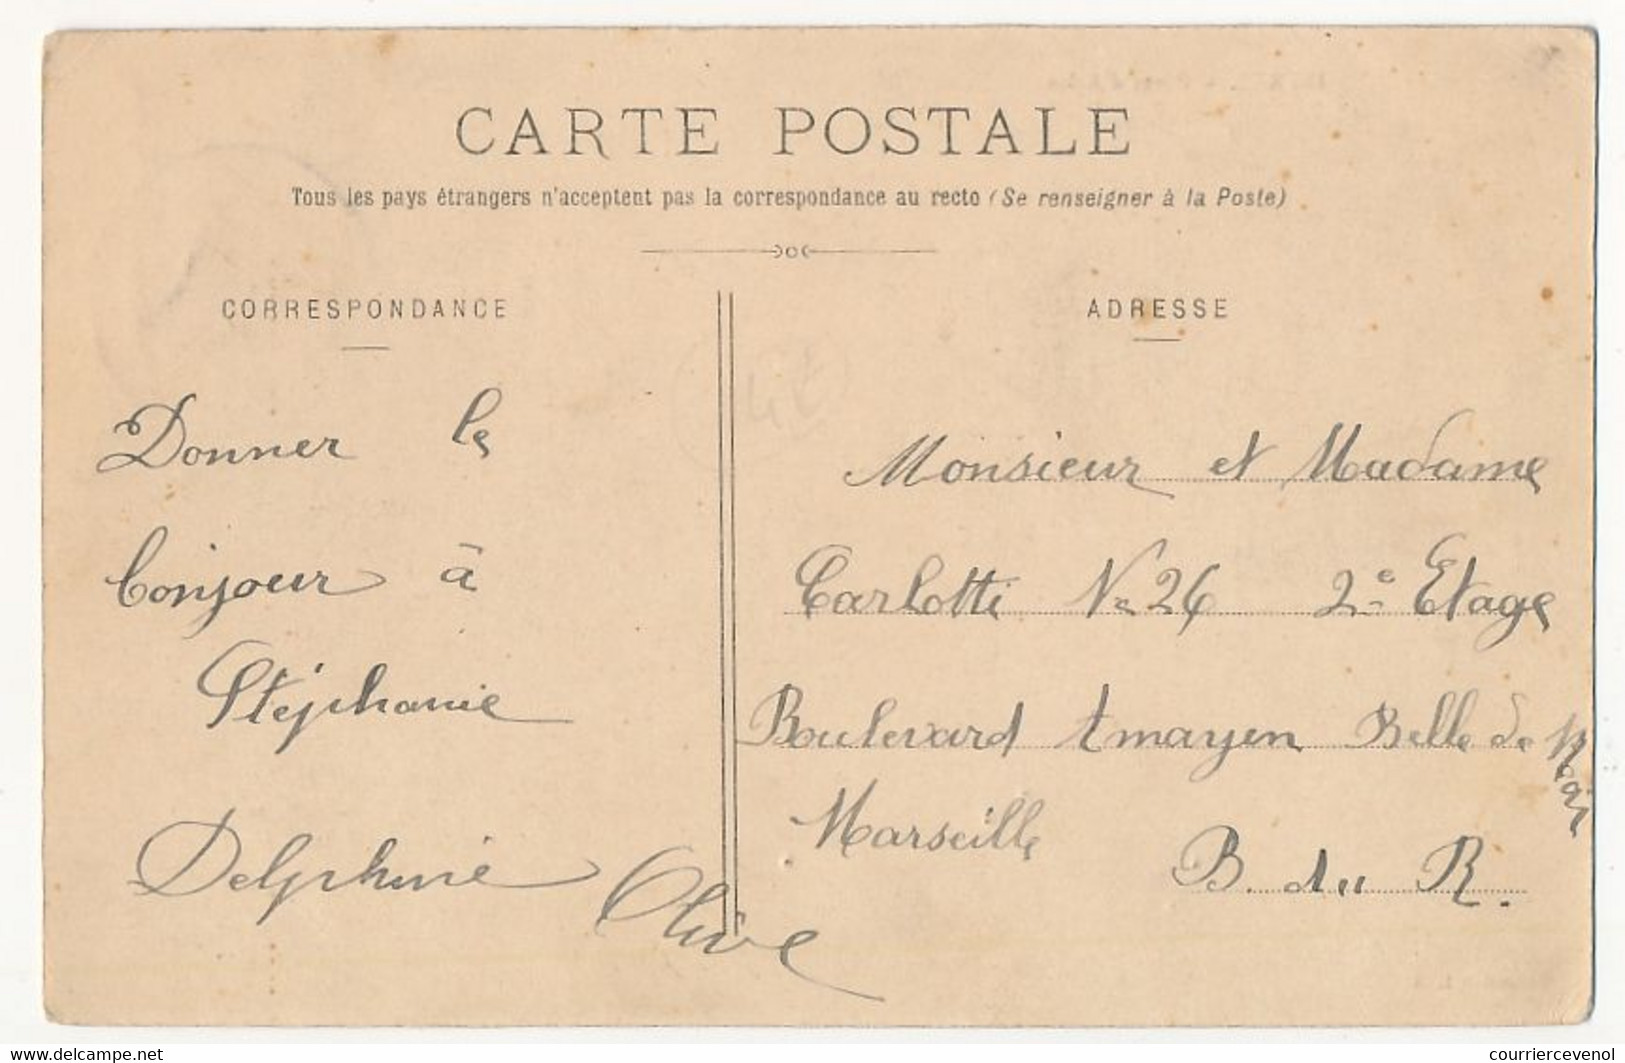 CARTE POSTALE
Tous les pays étrangers n'acceptent pas la correspondance au recto (Se renseigner à la Poste)
CORRESPONDANCE
Donner le
bonjour à
Stéphanie
Delphine Olive
ADRESSE
Monsieur et Madame
Carlotti No 26 2e Etage
Boulevard Amayen Belle de Mai
Marseille
B. du R.
delcampe.net
courriercevenol